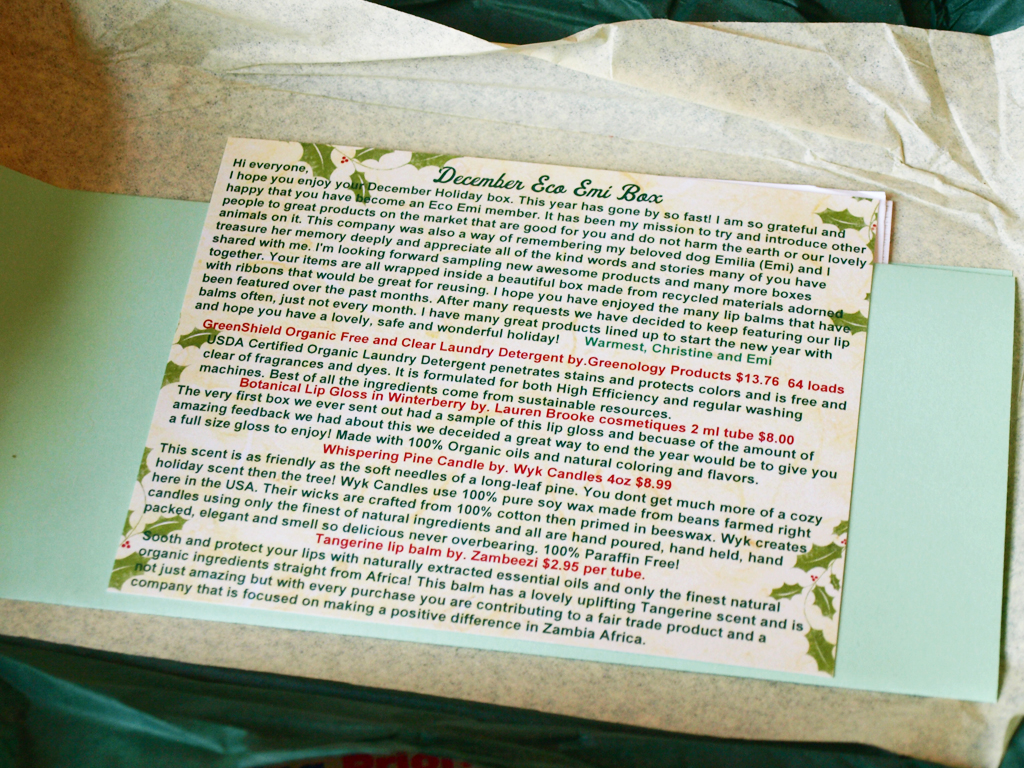 December Eco Emi Box
Hi everyone,
I hope you enjoy your December Holiday box. This year has gone by so fast! I am so grateful and
happy that you have become an Eco Emi member. It has been my mission to try and introduce other
people to great products on the market that are good for you and do not harm the earth or our lovely
animals on it. This company was also a way of remembering my beloved dog Emilia (Emi) and I
treasure her memory deeply and appreciate all of the kind words and stories many of you have
shared with me. I'm looking forward sampling new awesome products and many more boxes
together. Your items are all wrapped inside a beautiful box made from recycled materials adorned
with ribbons that would be great for reusing. I hope you have enjoyed the many lip balms that have
been featured over the past months. After many requests we have decided to keep featuring our lip
balms often, just not every month. I have many great products lined up to start the new year with
and hope you have a lovely, safe and wonderful holiday! Warmest, Christine and Emi
GreenShield Organic Free and Clear Laundry Detergent by.Greenology Products $13.76 64 loads
USDA Certified Organic Laundry Detergent penetrates stains and protects colors and is free and
clear of fragrances and dyes. It is formulated for both High Efficiency and regular washing
machines. Best of all the ingredients come from sustainable resources.
Botanical Lip Gloss in Winterberry by. Lauren Brooke cosmetiques 2 ml tube $8.00
The very first box we ever sent out had a sample of this lip gloss and becuase of the amount of
amazing feedback we had about this we deceided a great way to end the year would be to give you
a full size gloss to enjoy! Made with 100% Organic oils and natural coloring and flavors.
Whispering Pine Candle by. Wyk Candles 4oz $8.99
This scent is as friendly as the soft needles of a long-leaf pine. You dont get much more of a cozy
holiday scent then the tree! Wyk Candles use 100% pure soy wax made from beans farmed right
here in the USA. Their wicks are crafted from 100% cotton then primed in beeswax. Wyk creates
candles using only the finest of natural ingredients and all are hand poured, hand held, hand
packed, elegant and smell so delicious never overbearing. 100% Paraffin Free!
Tangerine lip balm by. Zambeezi $2.95 per tube.
Sooth and protect your lips with naturally extracted essential oils and only the finest natural
organic ingredients straight from Africa! This balm has a lovely uplifting Tangerine scent and is
not just amazing but with every purchase you are contributing to a fair trade product and a
company that is focused on making a positive difference in Zambia Africa.